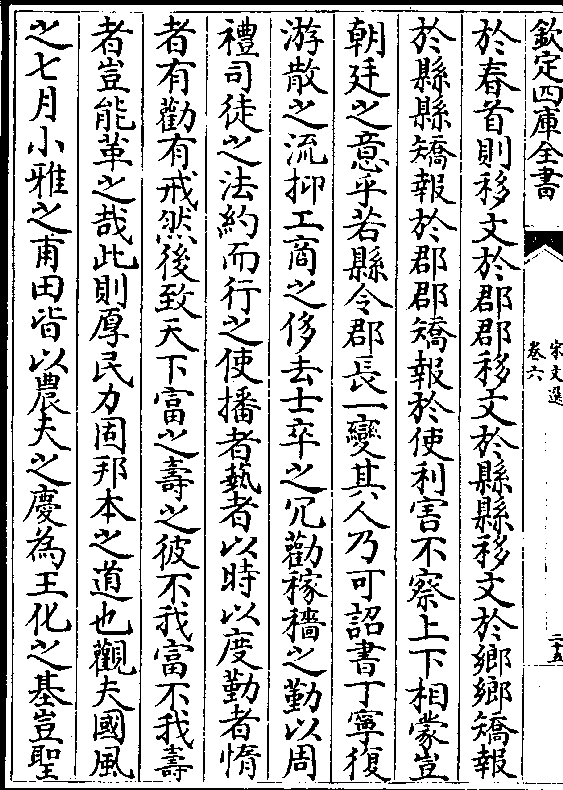 欽定四庫全書
宋文選
卷六
二十五
於春首則移文於郡郡移文於縣縣移文於鄉鄉矯報
於縣縣矯報於郡郡矯報於使利害不察上下相蒙豈
朝廷之意乎若縣令郡長一變其人乃可詔書丁寧復
游散之流抑工商之侈去士卒之冗勸稼穡之勤以周
禮司徒之法約而行之使播者藝者以時以度勤者惰
者有勸有戒然後致天下富之壽之彼不我富不我壽
者豈能革之哉此則厚民力固邦本之道也觀夫國風
之七月小雅之甫田皆以農夫之慶為王化之基豈聖